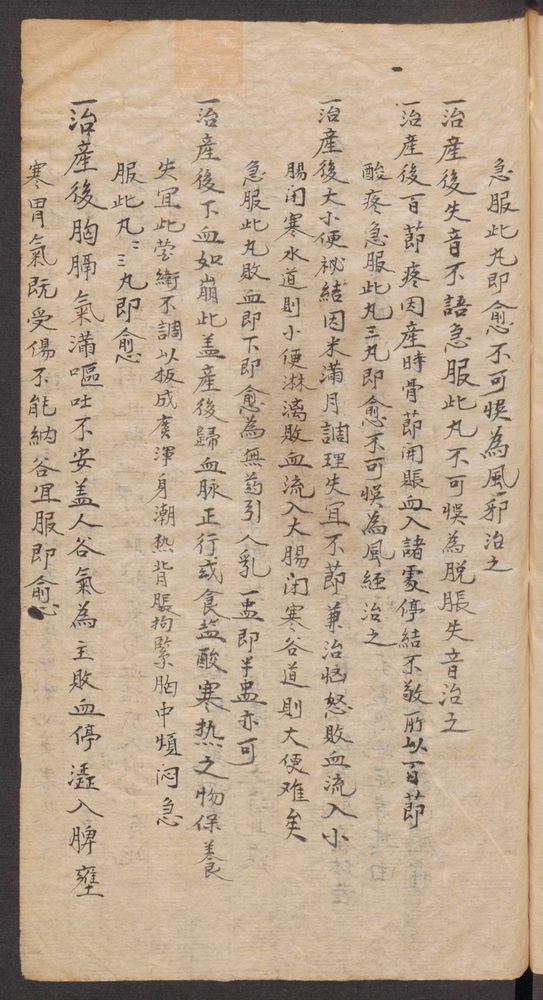 急服此丸即愈不可悮為風邪治之
一治產後失音不語急服此丸不可悮為脱脹失音治之
一治產後百莭疼因產時骨莭開賬血入諸䖏停結不敬所以百莭
酸疼急服此丸三丸即愈不可悮為風經治之
一治產後大小便秘結因未滿月調理失宜不莭兼治惱怒敗血流入小
腸闭寒水道則小便淋漓敗血流入大腸闭寒谷道則大便难矣
急服此丸敗血即下即愈為無药引人乳一盃即半盅亦可
一治產後下血如崩此盖產後歸血脉正行或食盐酸寒热之物保養
失宜此营衛不調以板成廣渾身潮热背脹拘緊胸中煩闷急
服此丸二三丸即愈
一治產後胸膈氣滿嘔吐不安盖人谷氣為主敗血停澁入脾壅
寒胃氣既受傷不能納谷宜服即愈